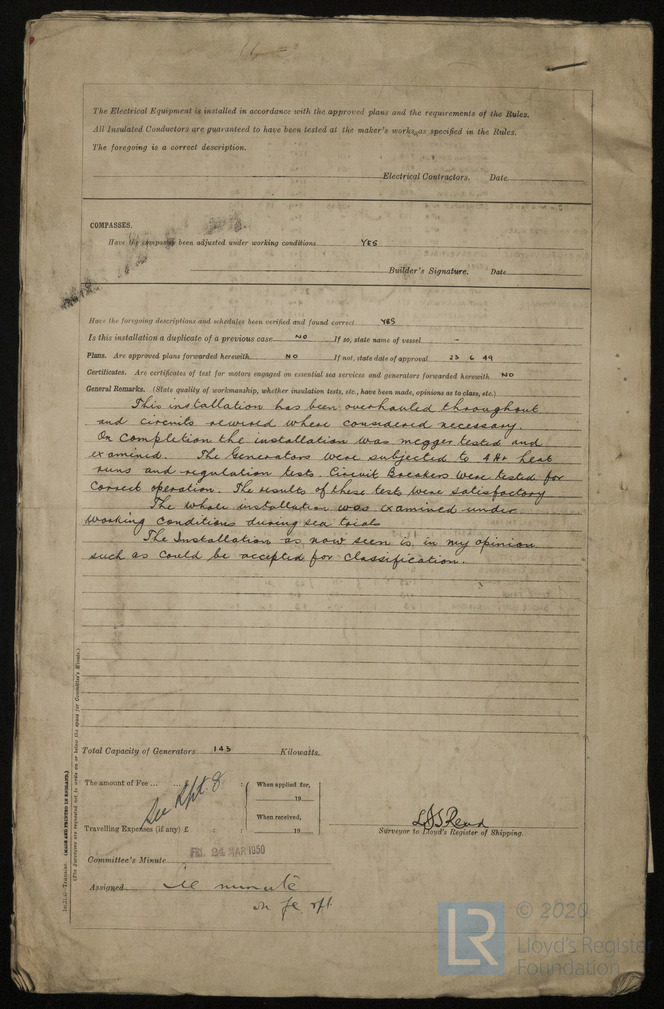 The Electrical Equipment is installed in accordance with the approved plans and the requirements of the Rules.
All Insulated Conductors are guaranteed to have been tested at the maker's works as specified in the Rules.
The foregoing is a correct description.
Electrical Contractors. Date
COMPASSES.
Have the compasses been adjusted under working conditions YES
Builder's Signature. Date
Have the foregoing descriptions and schedules been verified and found correct YES
Is this installation a duplicate of a previous case NO If so, state name of vessel -
Plans. Are approved plans forwarded herewith NO If not, state date of approval 23 6 49
Certificates. Are certificates of test for motors engaged on essential sea services and generators forwarded herewith NO
General Remarks. (State quality of workmanship, whether insulation tests, etc., have been made, opinions as to class, etc.)
This installation has been overhauled throughout
and circuits rewired where considered necessary.
On completion the installation was megger tested and
examined. The Generators were subjected to 4 Hr heat
runs and regulation tests. Circuit Breakers were tested for
correct operation. The results of these tests were satisfactory
The whole installation was examined under
working conditions during sea trials
The Installation as now seen is, in my opinion
such as could be accepted for classification.
Total Capacity of Generators 145 Kilowatts.
The amount of Fee ... ... £ : :
When applied for,
19
See Rpt. 8
When received,
19
Travelling Expenses (if any) £ : :
Surveyor to Lloyd's Register of Shipping.
Committee's Minute FRI. 24 MAR 1950
Assigned minute
on fe rpt.
(MADE AND PRINTED IN ENGLAND.)
(The Surveyors are requested not to write on or below the space for Committee's Minute.)
LR
© 2020
Lloyd's Register
Foundation